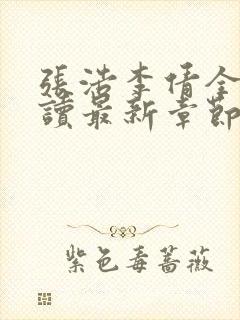 張浩李倩全
讀最新章節
紫色毒薔薇